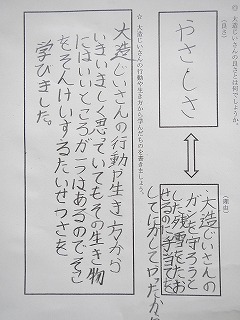 ◎ 大造じいさんの良さとは何でしょうか。
(良さ)
やさしさ
(理由)
大造じいさんの
がンを守ろうと
した残雪をたお
せるのに手当ひを
してにがしてやったから
☆ 大造じいさんの行動や生き方から学んだものを書きましょう。
大造じいさんの行動や生き方から
いまいましく思っていてもその生き物
にはいいところが一つはあるのでそこ
をそんけいするたいせつさを
学びました。